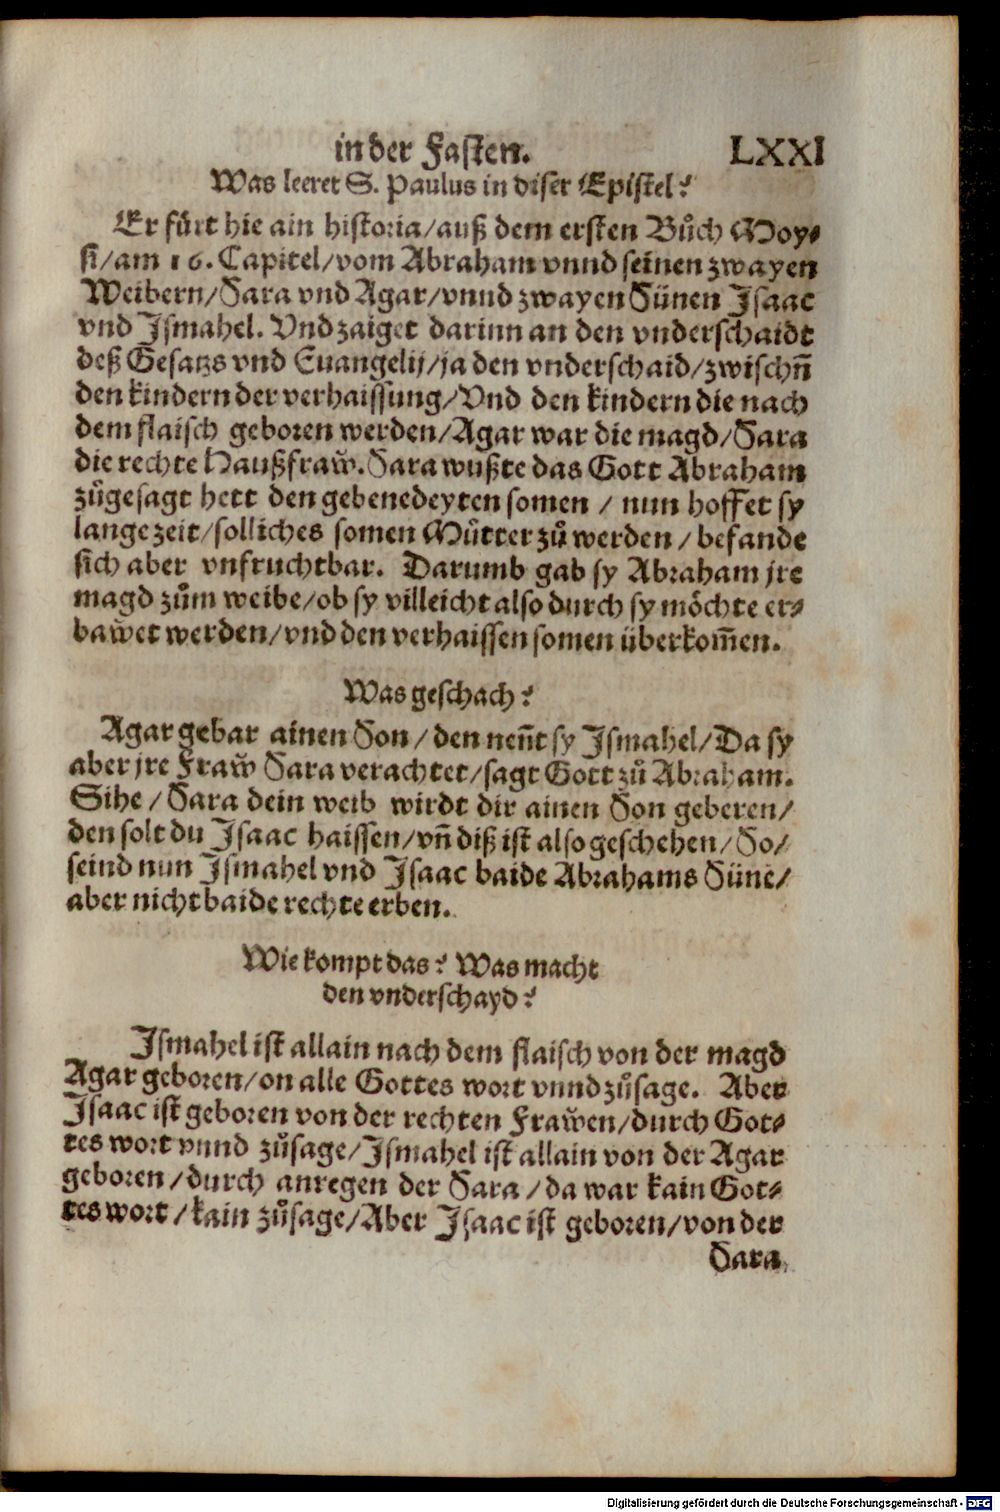 in der Fasten. LXXI
Was leeret S. Paulus in diser Epistel?
Er fůrt hie ain historia/auß dem ersten Bůch Moy⸗
si/am 16. Capitel/vom Abraham vnnd seinen zwayen
Weibern/Sara vnd Agar/vnnd zwayen Sünen Isaac
vnd Ismahel. Vnd zaiget darinn an den vnderschaidt
deß Gesatzs vnd Euangelij/ja den vnderschaid/zwischñ
den kindern der verhaissung/Vnd den kindern die nach
dem flaisch geboren werden/Agar war die magd/Sara
die rechte Haußfraw̃. Sara wußte das Gott Abraham
zůgesagt hett den gebenedeyten somen / nun hoffet sy
lange zeit/solliches somen Můtter zů werden / befande
sich aber vnfruchtbar. Darumb gab sy Abraham jre
magd zům weibe/ob sy villeicht also durch sy möchte er⸗
baw̃et werden/vnd den verhaissen somen überkom̃en.
Was geschach?
Agar gebar ainen Son / den neñt sy Ismahel/Da sy
aber jre Fraw̃ Sara verachtet/sagt Gott zů Abraham.
Sihe / Sara dein weib wirdt dir ainen Son geberen/
den solt du Isaac haissen/vñ diß ist also geschehen/So/
seind nun Ismahel vnd Isaac baide Abrahams Süne/
aber nicht baide rechte erben.
Wie kompt das? Was macht
den vnderschayd?
Ismahel ist allain nach dem flaisch von der magd
Agar geboren/on alle Gottes wort vnnd zůsage. Aber
Isaac ist geboren von der rechten Fraw̃en/durch Got⸗
tes wort vnnd zůsage/Ismahel ist allain von der Agar
geboren/durch anregen der Sara / da war kain Got⸗
tes wort / kain zůsage/Aber Isaac ist geboren/von der
Sara
Digitalisierung gefördert durch die Deutsche Forschungsgemeinschaft - DFG